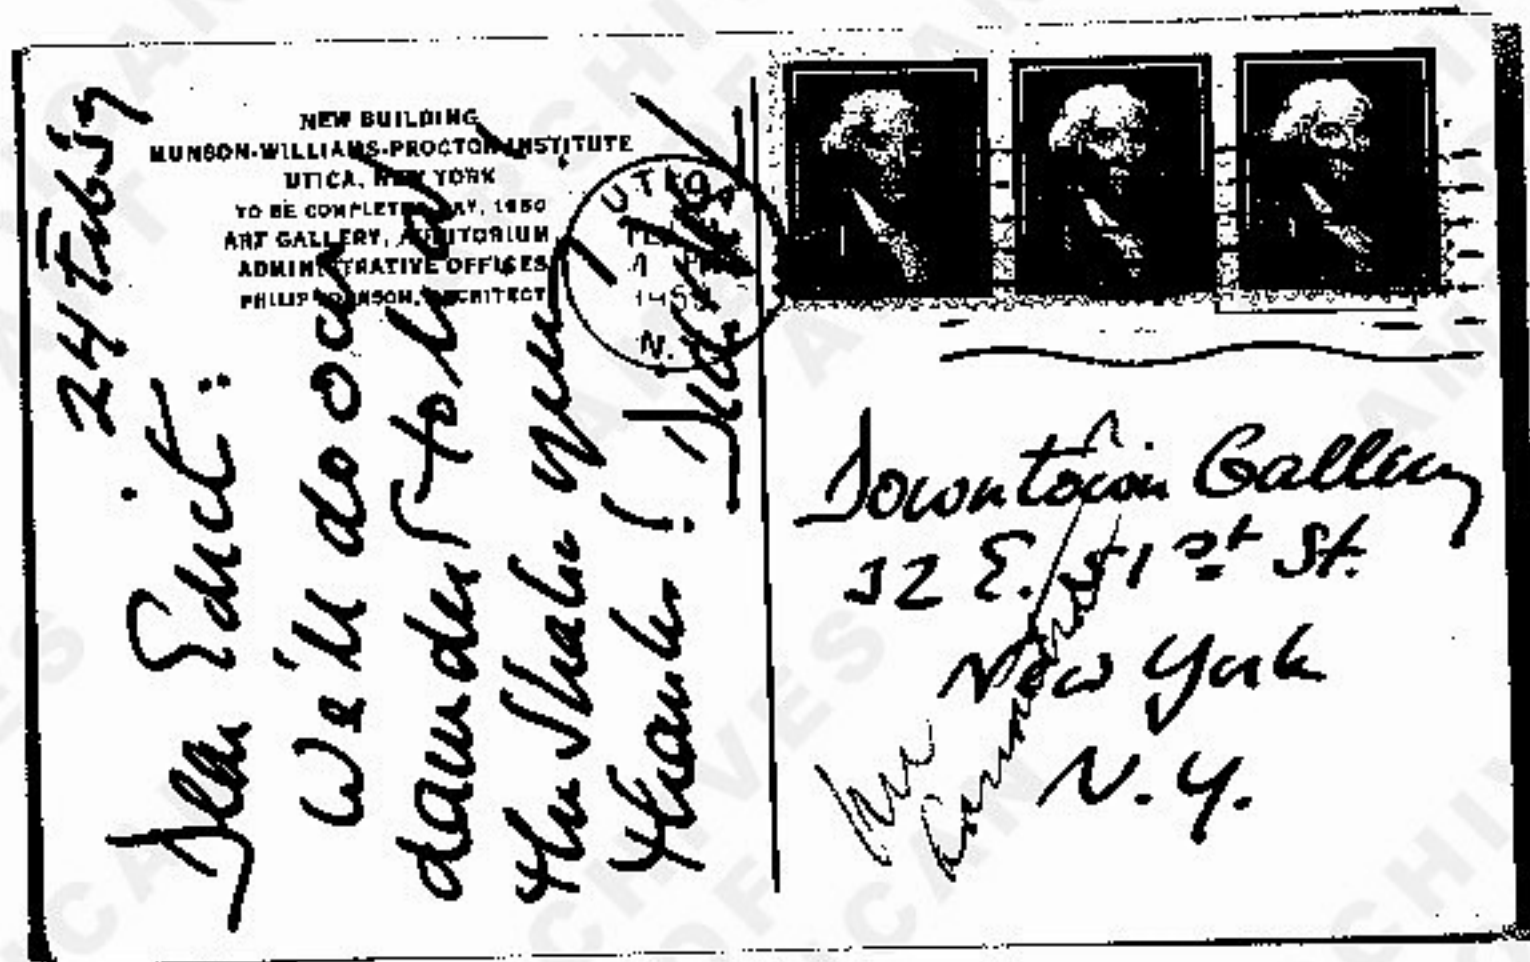 NEW BUILDING
MUNSON-WILLIAMS-PROCTOR INSTITUTE
UTICA, NEW YORK
TO BE COMPLETED MAY, 1960
ART GALLERY, AUDITORIUM
ADMINISTRATIVE OFFICES
PHILIP JOHNSON, ARCHITECT
24 Feb 59
Dear Edith:
We'll do our
damndest to
the Shahn
thanks!
UTICA
1959
N.Y.
Downtown Gallery
32 E. 51st St.
New York
N.Y.
ARCHIVES
OF
AMERICAN